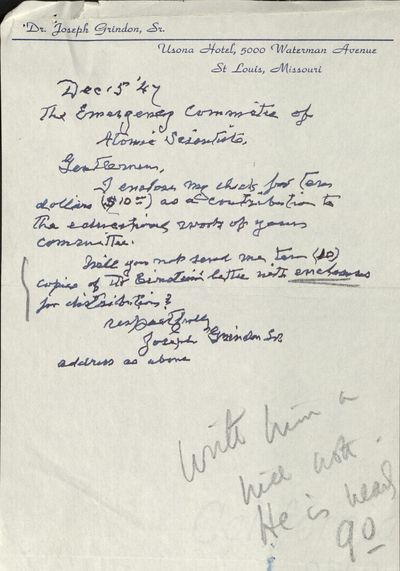 Dr. Joseph Grindon, Sr.
Usona Hotel, 5000 Waterman Avenue
St Louis, Missouri
Dec 15 '47
The Emergency Committee of
Atomic Scientists,
Gentlemen,
I enclose my check for ten
dollars ($10.00) as a contribution to
the educational work of your
committee.
Will you not send me ten (10)
copies of Dr Einstein's letter with enclosures
for distribution?
respectfully
Joseph Grindon Sr.
address as above
Write him a
nice note.
He is near
90